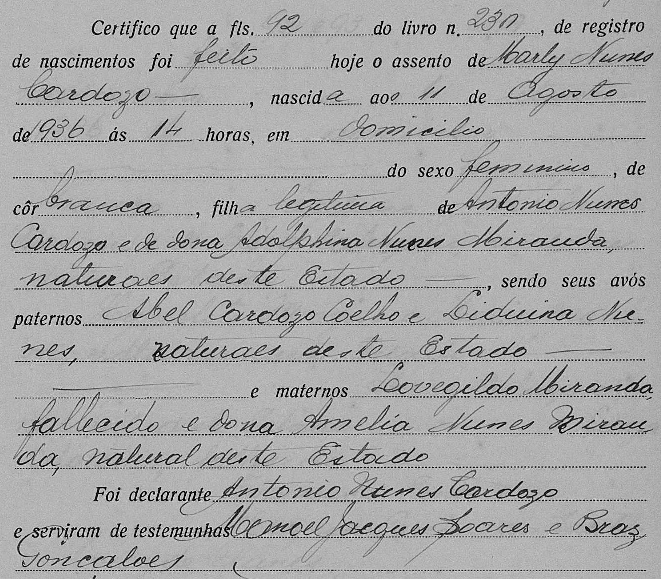 Certifico que a fls. 92 do livro n. 230, de registro
de nascimentos foi feito hoje o assento de Marly Nunes
Cardozo —, nascida aos 11 de Agosto
de 1936 ás 14 horas, em domicilio
do sexo feminino, de
côr branca, filha legitima de Antonio Nunes
Cardozo e de dona Adolphina Nunes Miranda,
naturaes deste Estado —, sendo seus avós
paternos Abel Cardozo Coelho e Liduina Nu-
nes, naturaes deste Estado —
— e maternos Lovegildo Miranda,
fallecido e dona Amelia Nunes Miran
da, natural deste Estado
Foi declarante Antonio Nunes Cardozo
e serviram de testemunhas Memoel Jacques Soares e Braz
Goncalves